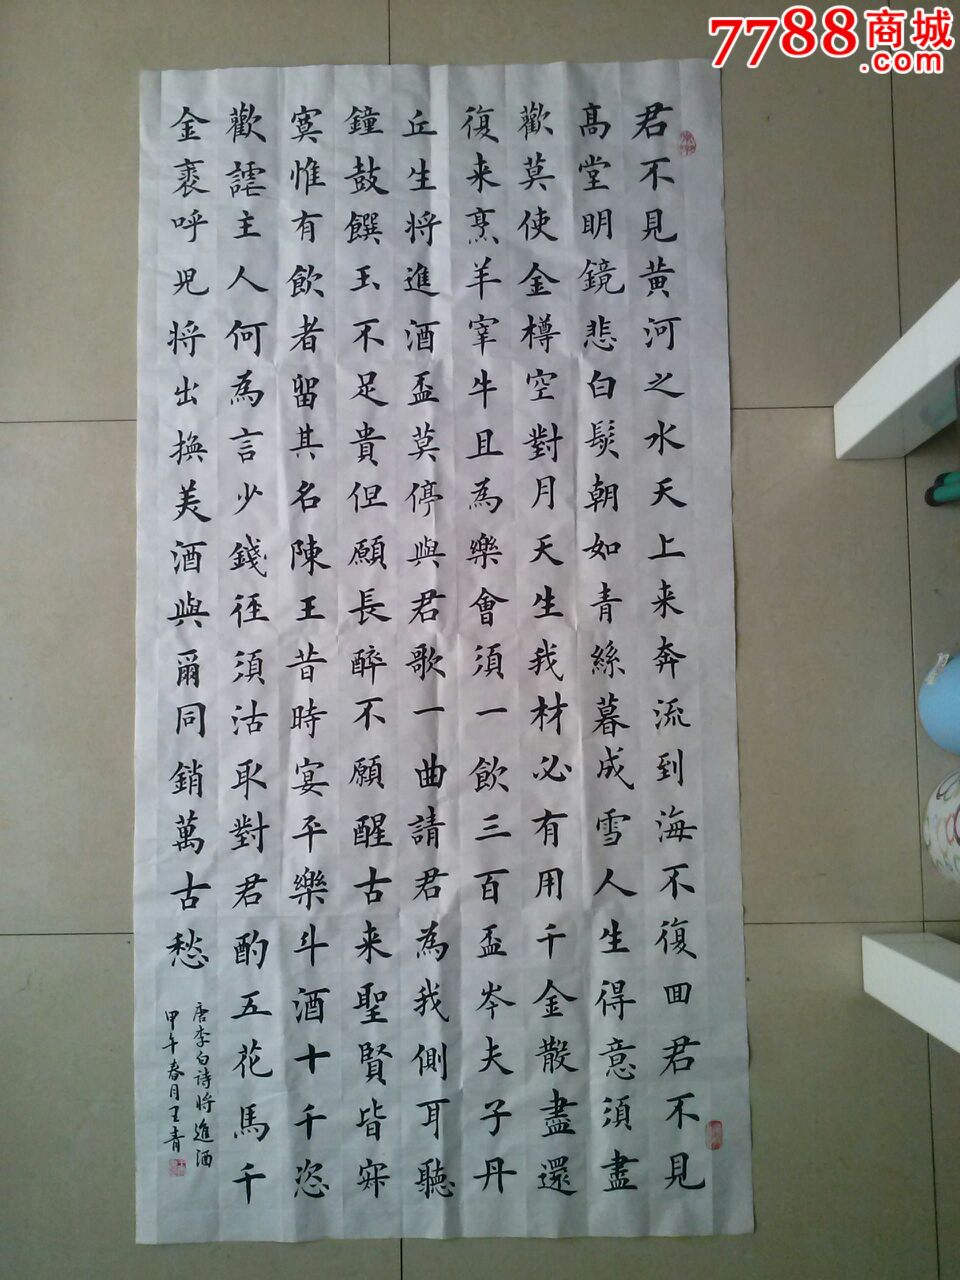 7788商城
.com
君不見黄河之水天上来奔流到海不復回君不見
髙堂明鏡悲白髮朝如青絲暮成雪人生得意須盡
歡莫使金樽空對月天生我材必有用千金散盡還
復来烹羊宰牛且為樂會須一飲三百盃岑夫子丹
丘生将進酒盃莫停與君歌一曲請君為我側耳聽
鐘鼓饌玉不足貴但願長醉不願醒古来聖賢皆寂
寞惟有飲者留其名陳王昔時宴平樂斗酒十千恣
歡謔主人何為言少錢徑須沽取對君酌五花馬千
金裘呼児将出換美酒與爾同銷萬古愁
唐李白詩将進酒
甲午春月王青